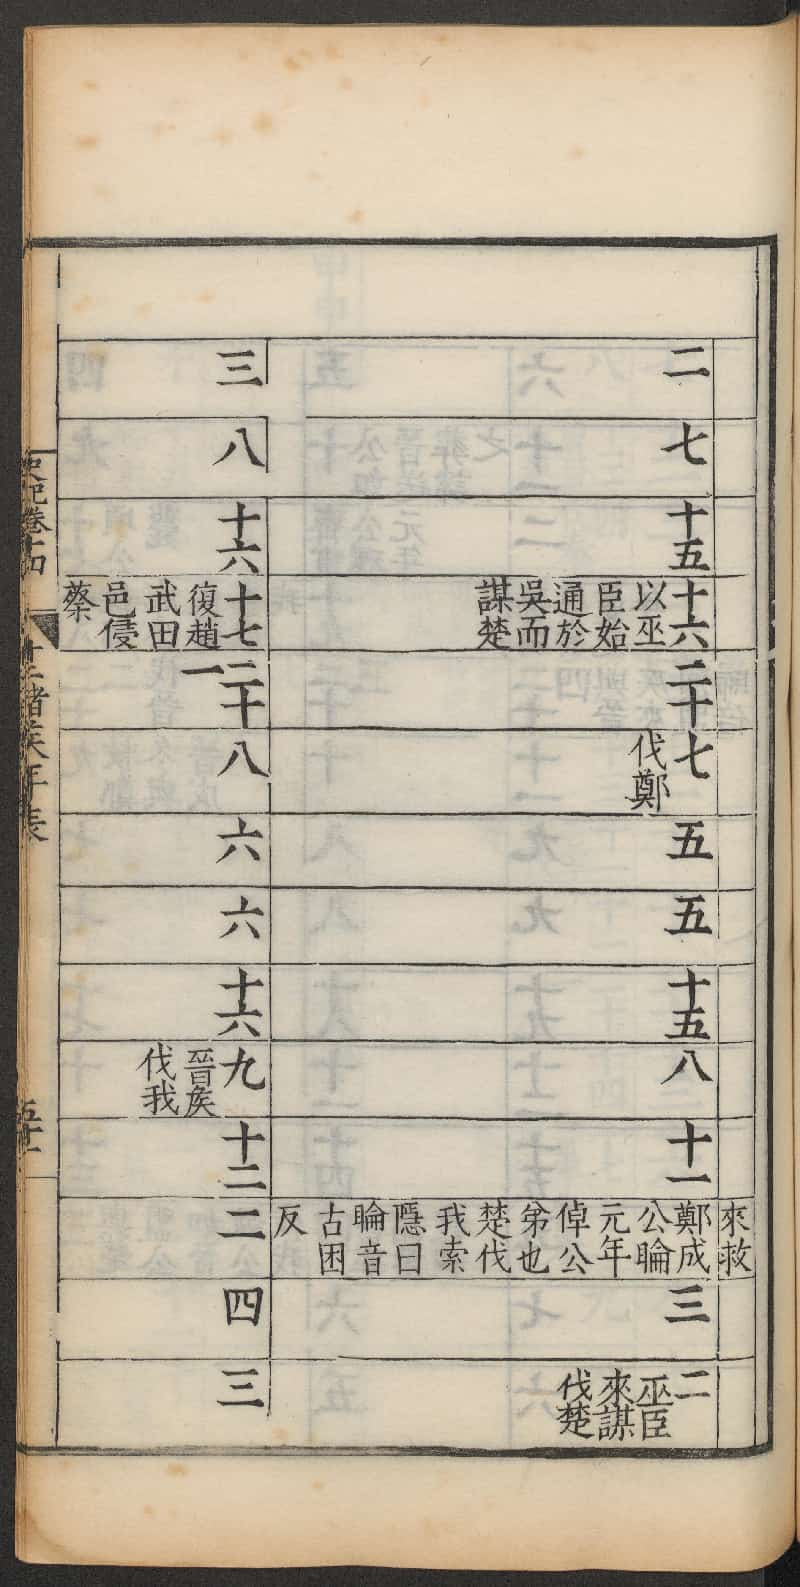 來救
二
七
十五
十六
以巫
臣始
通於
吳而
謀楚
二十
七
伐鄭
五
五
十五
八
十一
鄭成
公睔
元年
倬公
弟也
楚伐
我索
隱曰
睔音
古困
反
三
二
巫臣
來謀
伐楚
三
八
十六
十七
復趙
武田
邑侵
蔡
二十一
八
六
六
十六
九
晉矦
伐我
十二
二
四
三
史記卷十四
十二諸矦年表